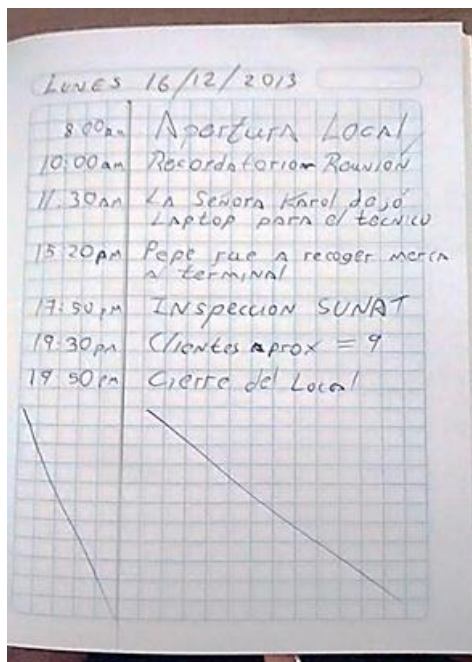 LUNES 16/12/2013
8:00am Apertura Local
10:00am Recordatorio Reunión
11:30am La Señora Karol dejó
Laptop para el técnico
15:20pm Pepe fue a recoger merca
a terminal
17:50pm Inspeccion SUNAT
19:30pm Clientes aprox = 9
19:50pm Cierre del Local